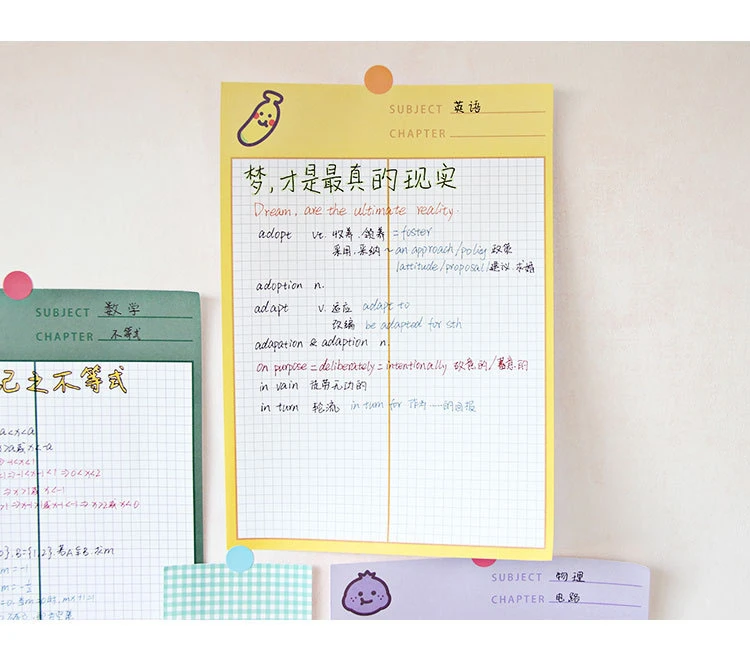 SUBJECT 英语
CHAPTER
梦,才是最真的现实
Dream, are the ultimate reality.
adopt vt. 收养.领养 = foster
采用.采纳 ~ an approach/policy 政策
/attitude/proposal/建议.求婚
adoption n.
adapt v. 适应 adapt to
改编 be adapted for sth
adapation & adaption n.
on purpose = deliberately = intentionally 故意的/蓄意的
in vain 徒劳无功的
in turn 轮流 in turn for 作为……的回报
SUBJECT 数学
CHAPTER 不等式
记之不等式
a<x<a
⇒x>1或x<-1
SUBJECT 物理
CHAPTER 电路